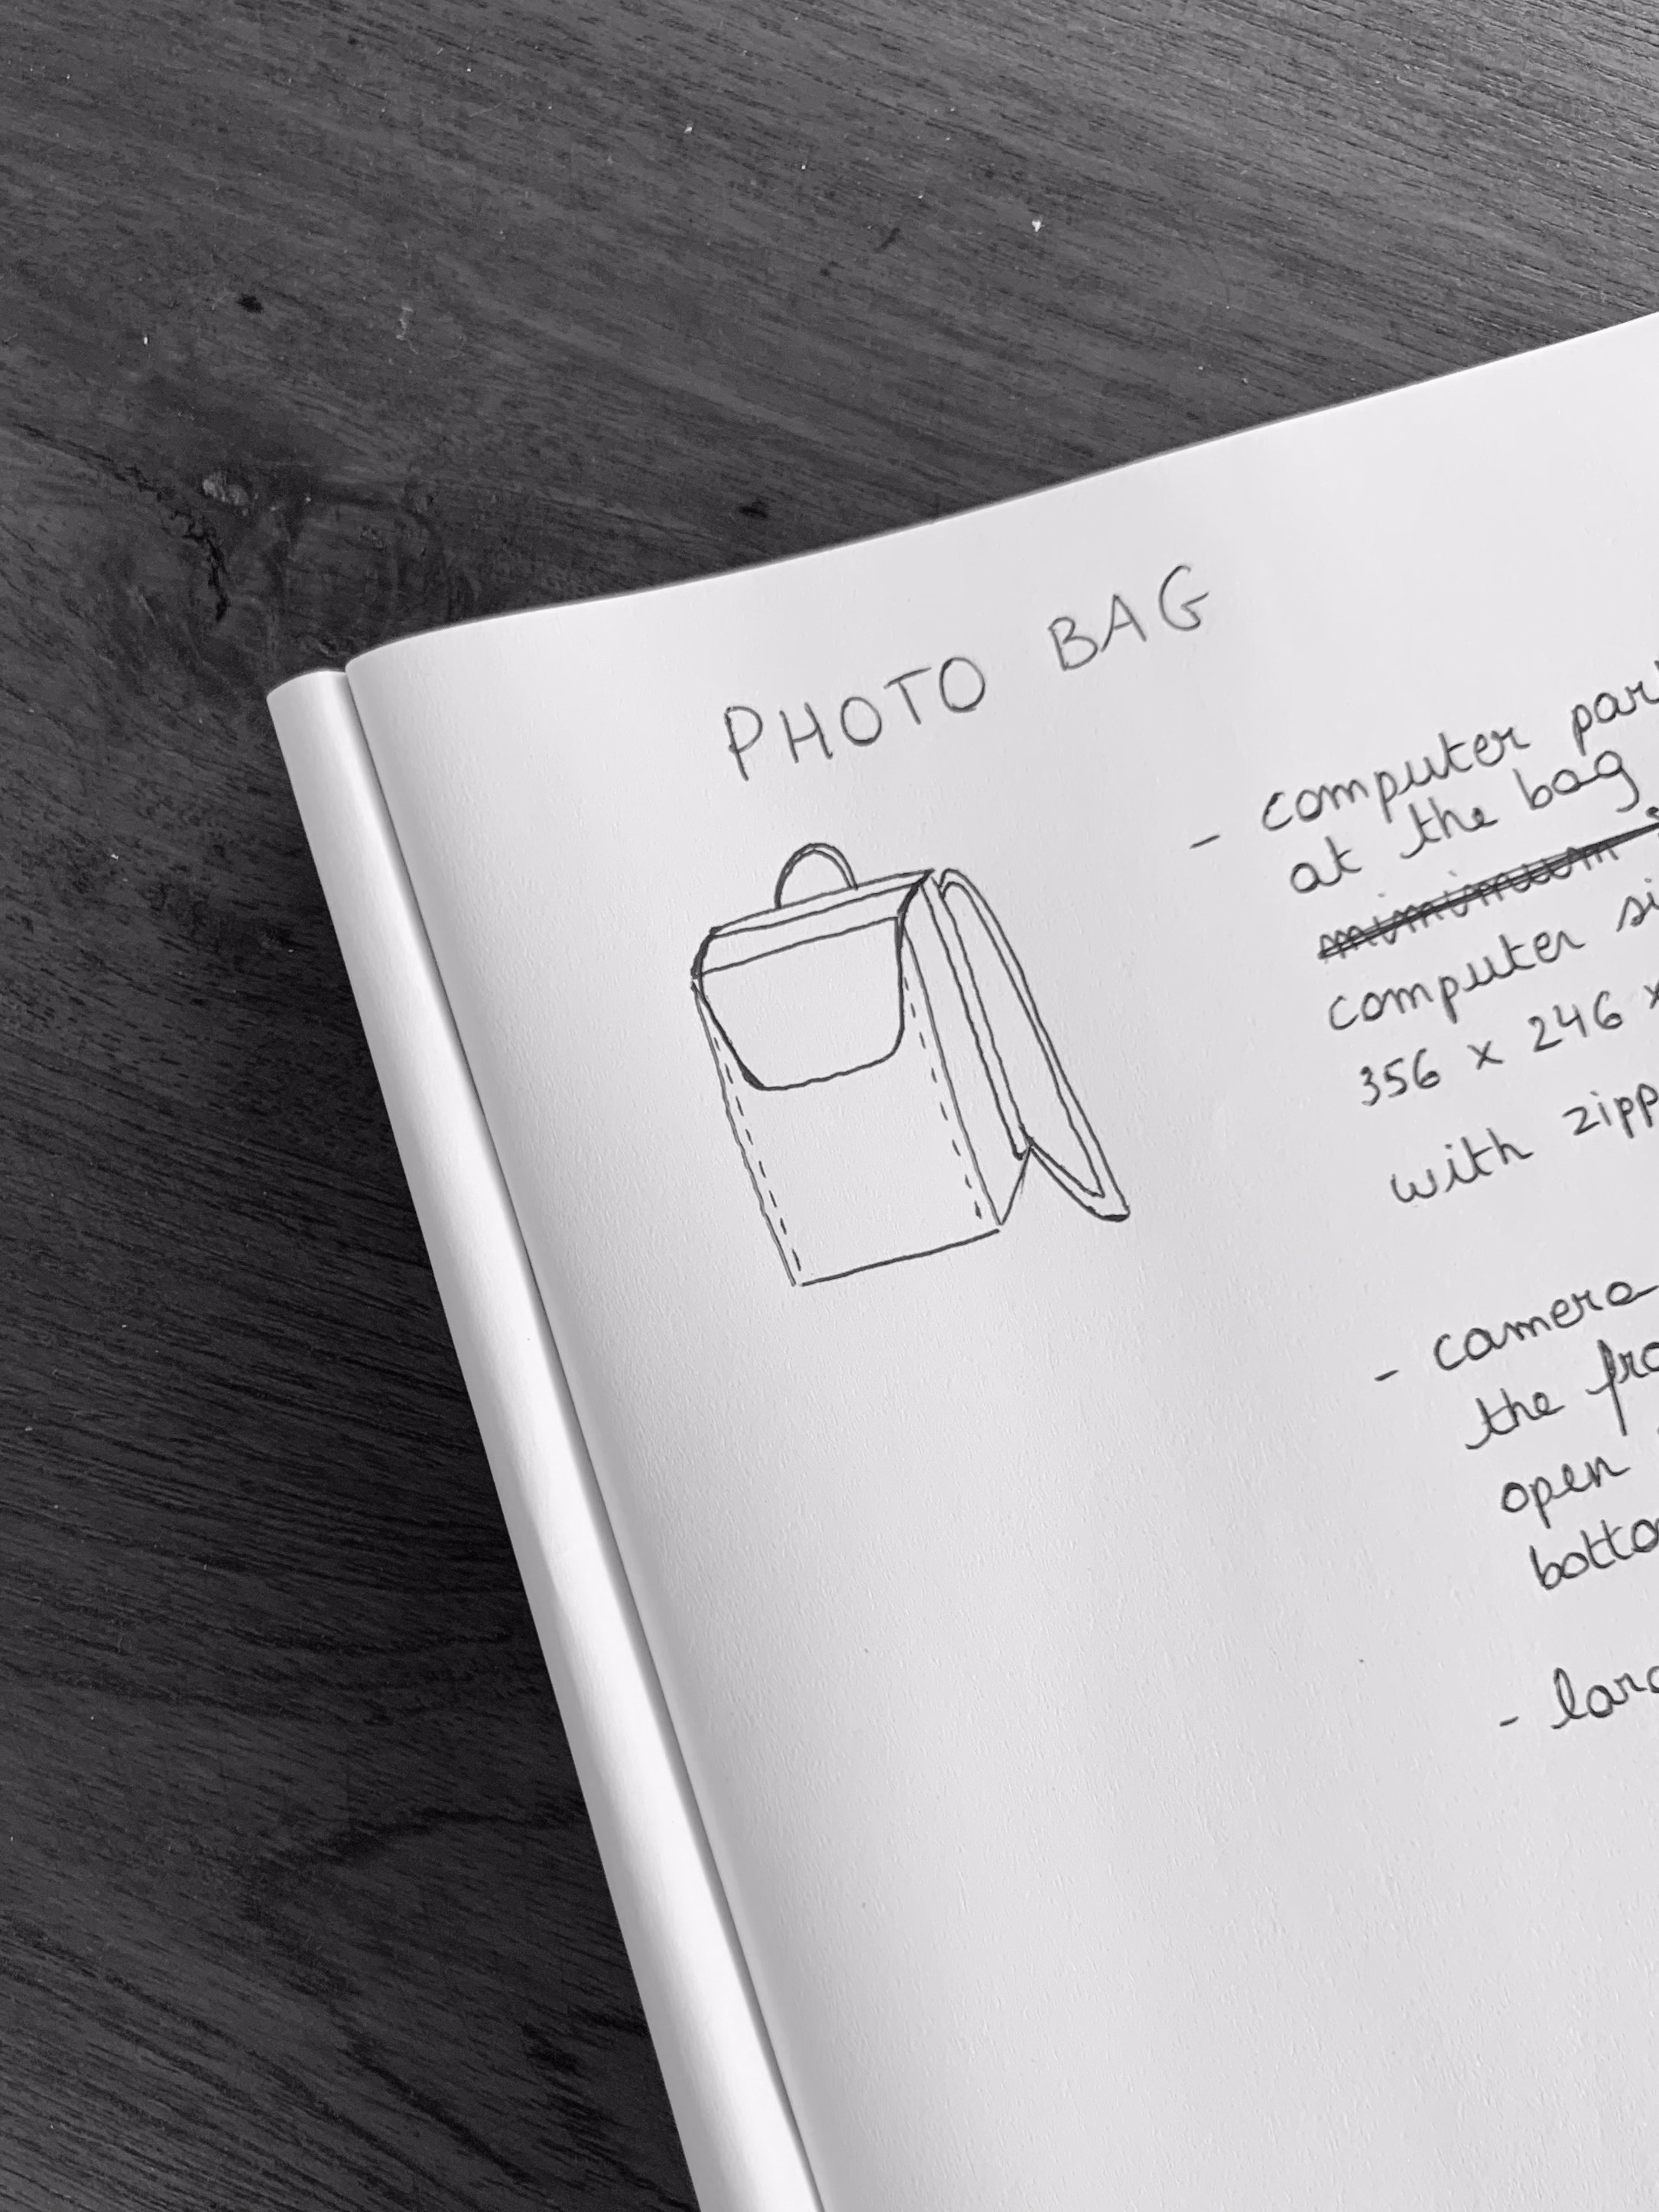 PHOTO BAG
- computer par
at the bag
computer si
356 x 246 x
with zipp
- camera
the fro
open
botto
- lar